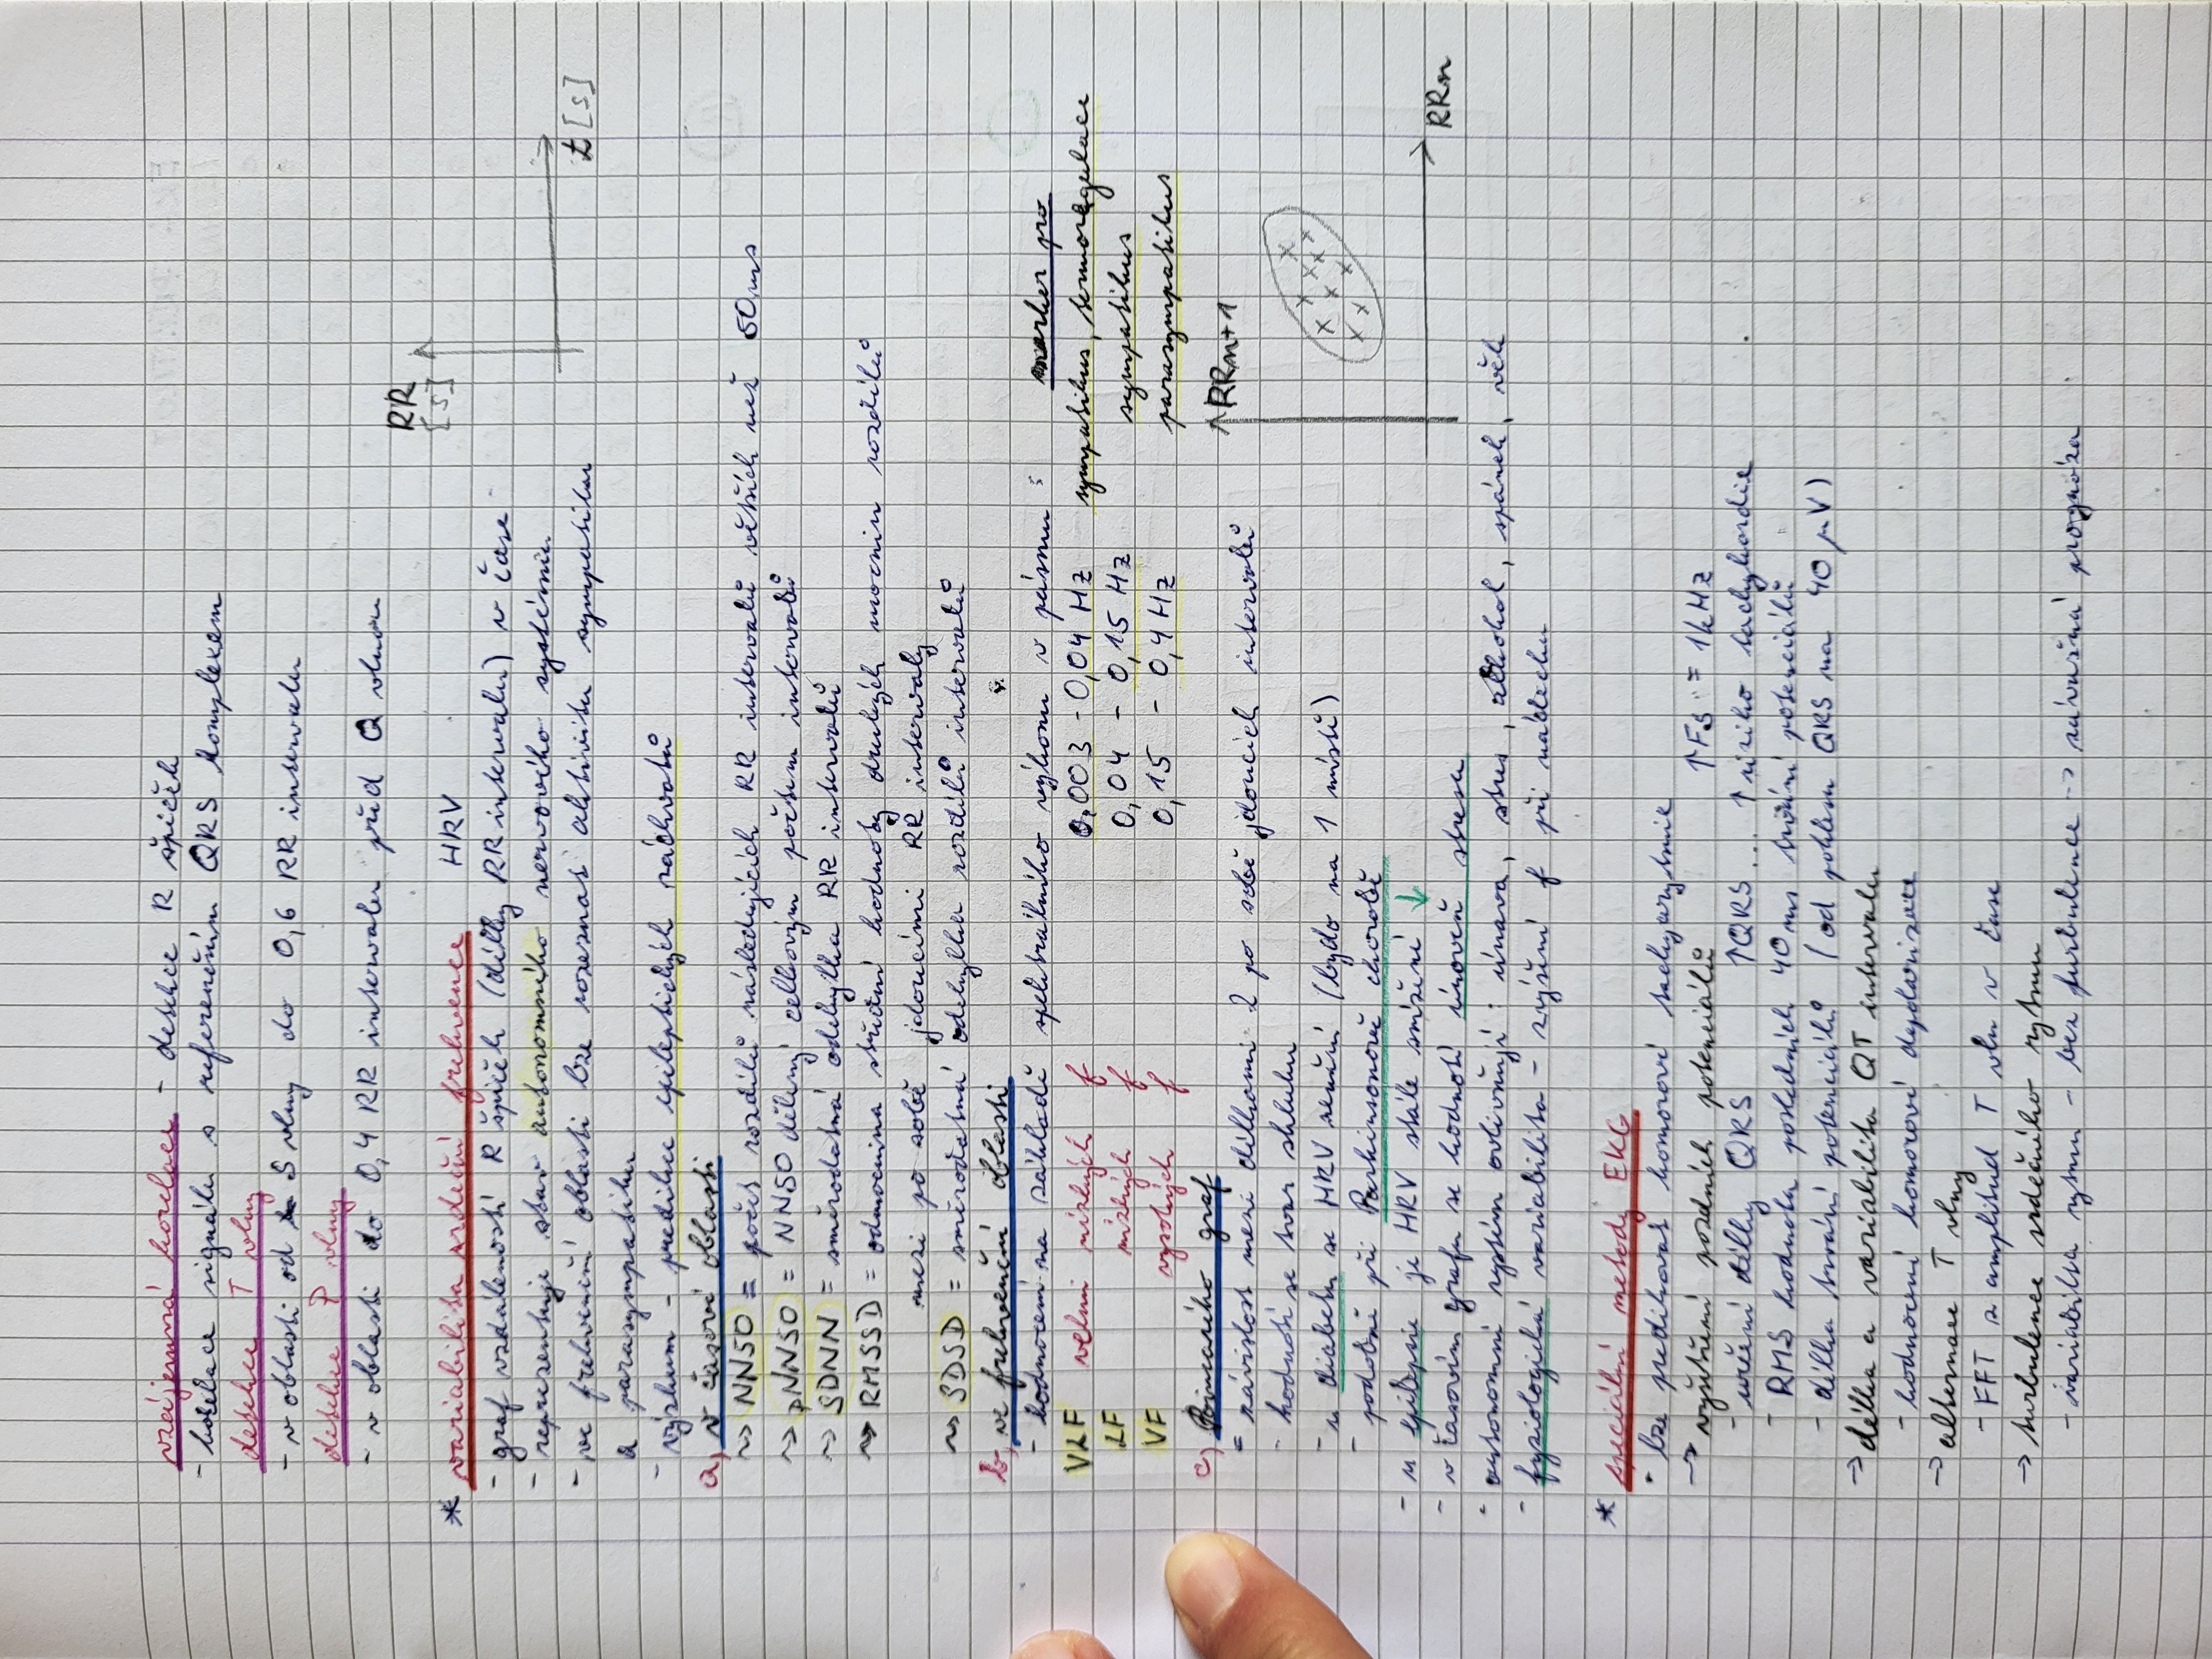 vzájemná korelace - detekce R špiček
- korelace signálu s referenčním QRS komplexem
detekce T vlny
- v oblasti od S vlny do 0,6 RR intervalu
detekce P vlny
- v oblasti do 0,4 RR intervalu před Q vlnou
RR
[s]
* variabilita srdeční frekvence HRV
- graf vzdáleností R špiček (délky RR intervalu) v čase
- reprezentuje stav autonomního nervového systému
- ve frekvenční oblasti lze rozeznat aktivitu sympatiku
t [s]
a parasympatiku
- výzkum - predikce epileptických záchvatů
a) v časové oblasti
~> NN50 = počet rozdílů následujících RR intervalů větších než 50 ms
~> pNN50 = NN50 dělený celkovým počtem intervalů
~> SDNN = směrodatná odchylka RR intervalů
~> RMSSD = odmocnina střední hodnoty druhých mocnin rozdílů
mezi po sobě jdoucími RR intervaly
~> SDSD = směrodatná odchylka rozdílů intervalů
b) ve frekvenční oblasti
- hodnocení na základě spektrálního výkonu v pásmu : marker pro
VLF velmi nízkých f 0,003 - 0,04 Hz sympatikus, termoregulace
LF nízkých f 0,04 - 0,15 Hz sympatikus
VF vysokých f 0,15 - 0,4 Hz parasympatikus
c) Poincarého graf
RRn+1
- závislost mezi délkami 2 po sobě jdoucích intervalů
- hodnotí se tvar shluku
- u diabetu se HRV nemění (bydo na 1 místě)
- podobně při Parkinsonově chorobě
- u epilepsie je HRV stále snížené ↓
RRn
- v časovém grafu se hodnotí úroveň stresu
- autonomní systém ovlivňují : únava, stres, alkohol, spánek, věk
- fyziologická variabilita - zvýšení f při nádechu
* speciální metody EKG
- lze predikovat komorové tachyarytmie
-> vyšetření pozdních potenciálů ↑Fs = 1kHz
- určení délky QRS ↑QRS ... ↑riziko tachykardie
- RMS hodnota posledních 40 ms trvání potenciálů
- délka trvání potenciálů (od poklesu QRS na 40 μV)
-> délka a variabilita QT intervalu
- hodnocení komorové depolarizace
-> alternace T vlny
- FFT z amplitud T vln v čase
-> turbulence srdečního rytmu
- variabilta rytmu - bez turbulence -> závažná prognóza